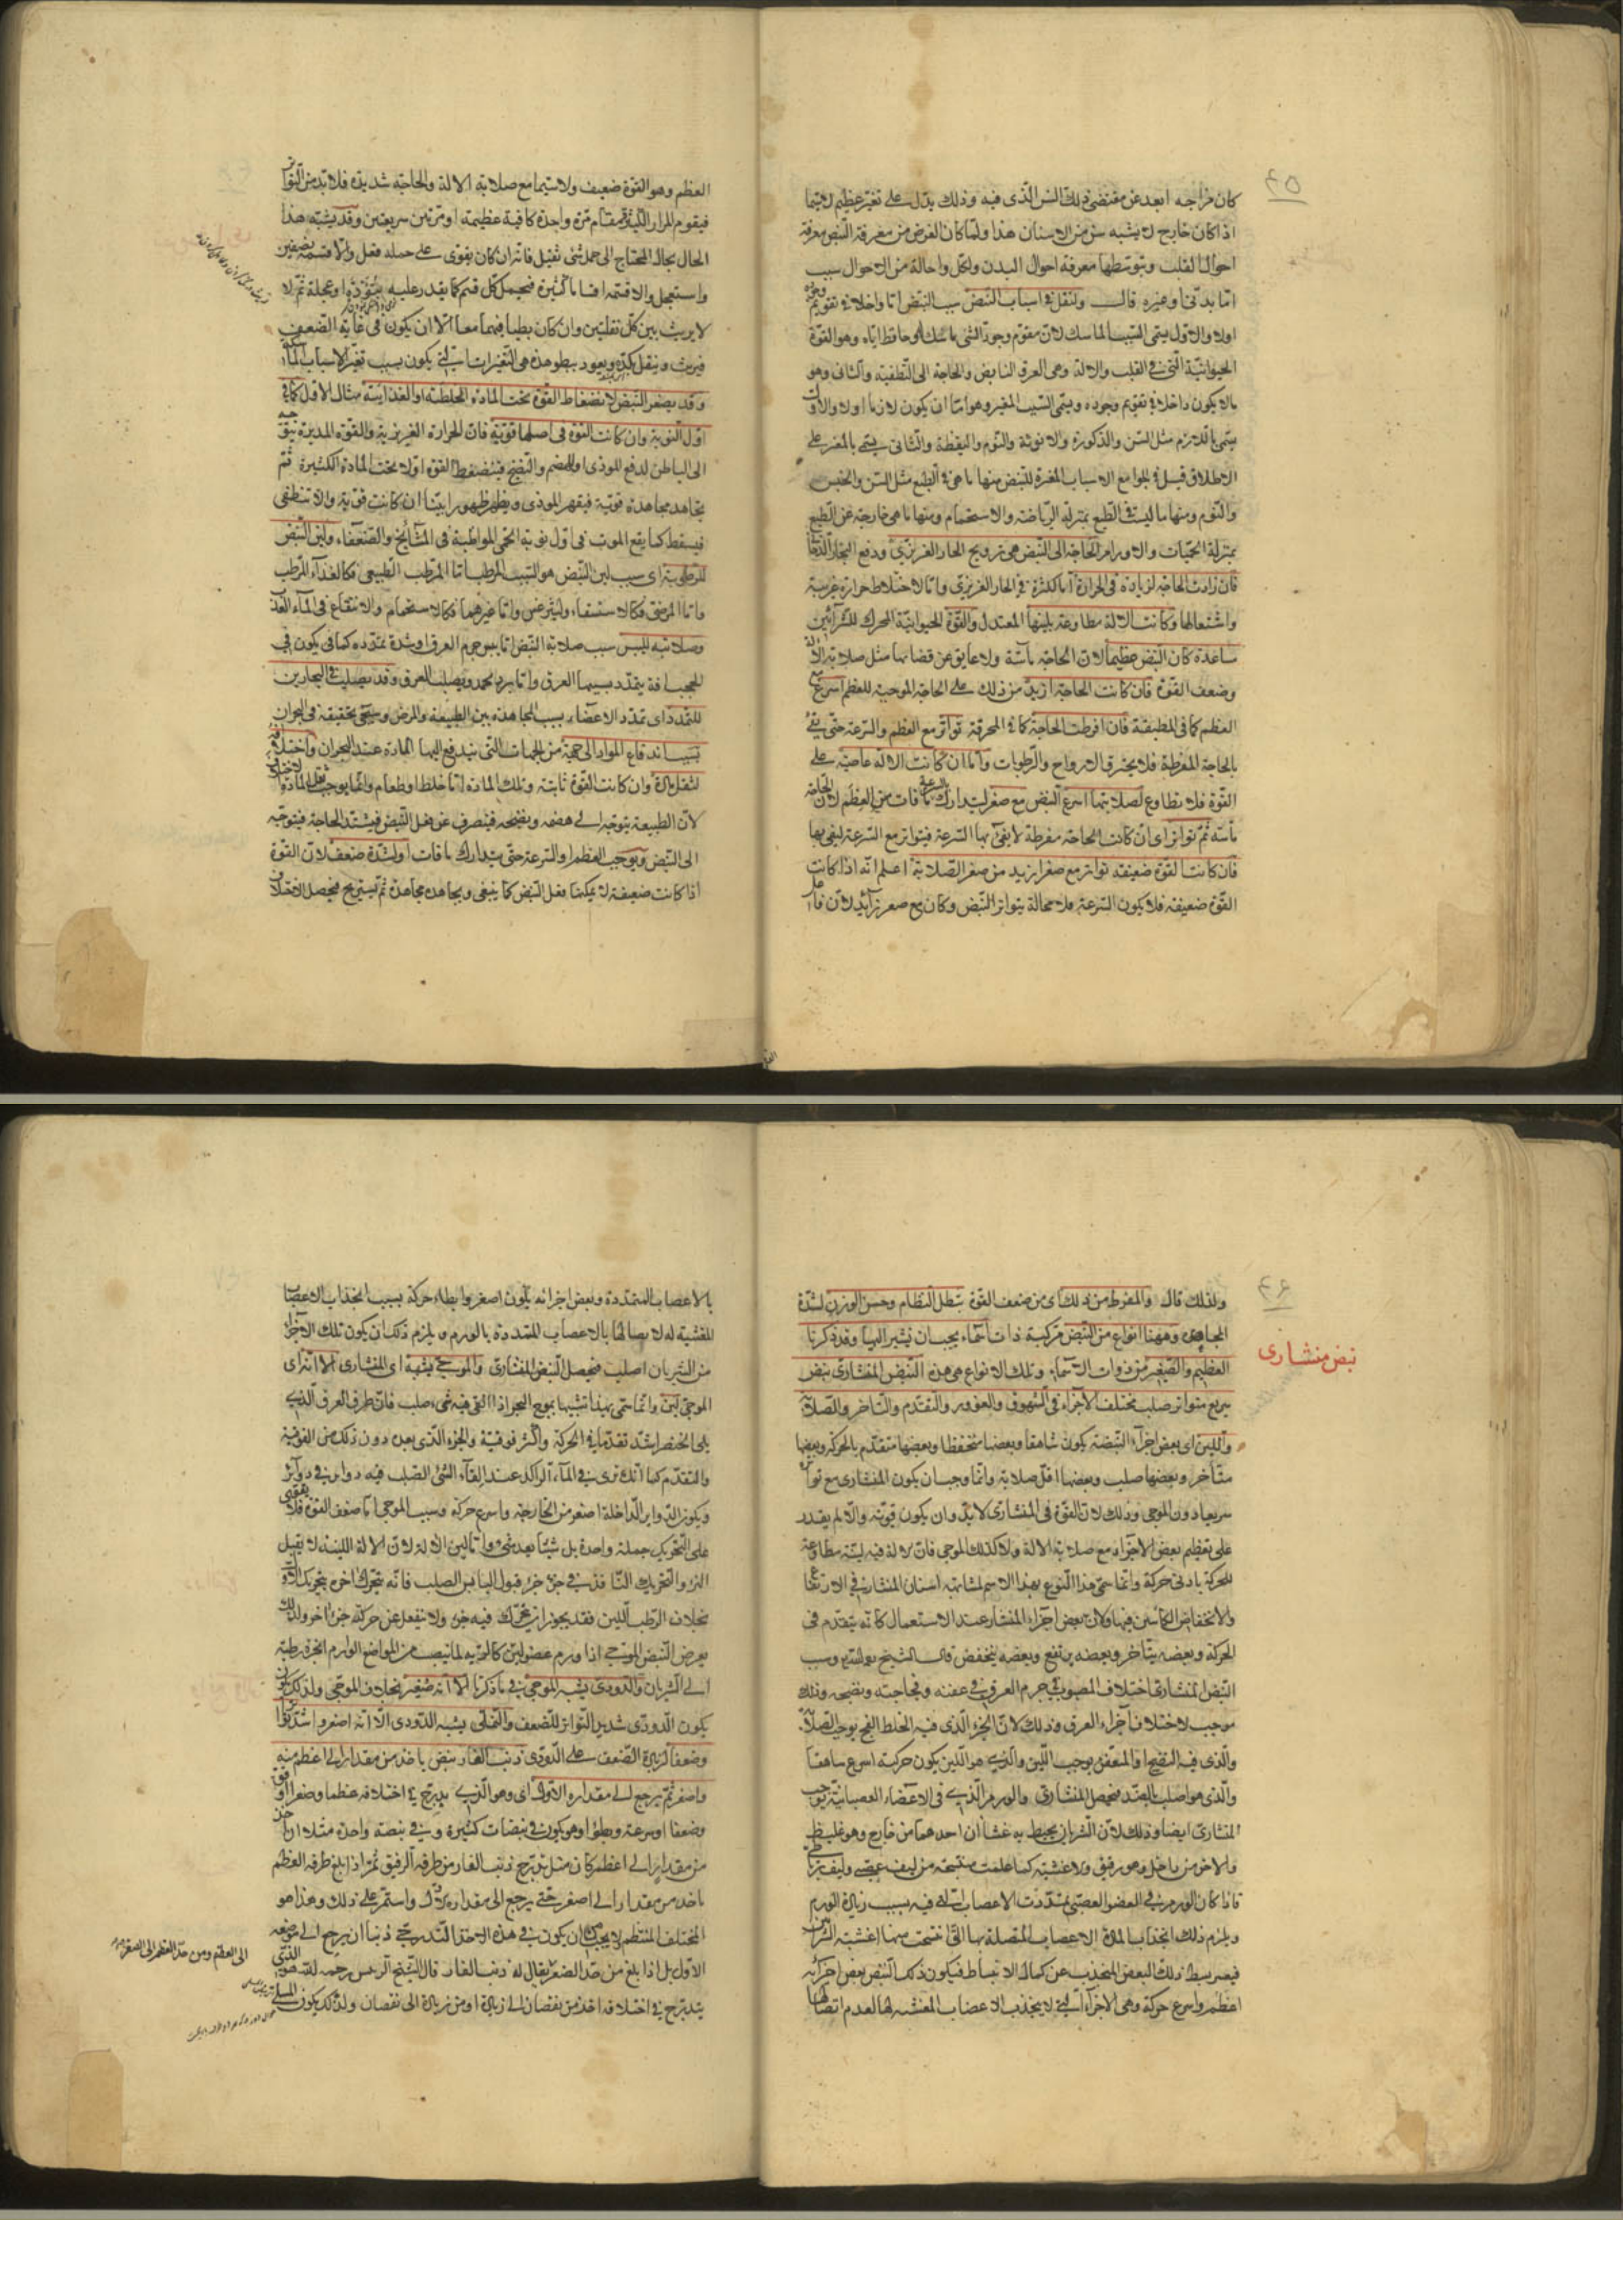 ٤٥
كان مزاجه ابعد عن مقتضى ذلك السن الذى فيه وذلك يدل على تغير عظيم لاسيما
اذا كان خارج لا يشبه سن من الاسنان هذا ولما كان الغرض من معرفة النبض معرفة
احوال القلب وبتوسطها معرفة احوال البدن ولكل واحالة من الاحوال سبب
اما بدنى او غيره قال ولنقل فى اسباب النبض سبب النبض اما داخلا فى تقويم
اولا والاول يسمى السبب الماسك لان مقوم وجود الشئ ماسك له وحافظ اياه وهو القوة
الحيوانية التى فى القلب والالة وهى العرق النابض والحاجة الى التطفية والثانى وهو
ما لا يكون داخلا فى تقويم وجوده ويسمى السبب المغير وهو اما ان يكون لازما اولا والاول
يسمى باللازم مثل السن والذكورة والانوثة والنوم واليقظة والثانى يسمى بالمغير على
الاطلاق قيل فى الجوامع الاسباب المغيرة للنبض منها ما هى فى الطبع مثل السن والجنس
والنوم ومنها ما ليست فى الطبع بمنزلة الرياضة والاستحمام ومنها ما هى خارجة عن الطبع
بمنزلة الحميات والاورام الحاجة الى النبض هى ترويح الحار الغريزى ودفع البخار الدخانى
فان زادت الحاجة لزيادة فى الحرارة اما لكثرة فى الحار الغريزى واما لاختلاط حرارة غريبة
واشتعالها وكانت الالة مطاوعة بلينها المعتدل والقوة الحيوانية المحرك للشرائين
مساعدة كان النبض عظيما لان الحاجة ماسة ولا عايق عن قضايها مثل صلابة الالة
وضعف القوة فان كانت الحاجة ازيد من ذلك على الحاجة الموجبة للعظم اسرع مع
العظم كما فى المطبقة فان افرطت الحاجة كما فى المحرقة تواتر مع العظم والسرعة حتى يفى
بالحاجة المفرطة فلا يحترق الارواح والرطوبات واما ان كانت الالة عاصية على
القوة فلا تطاوع لصلابتها اسرع النبض مع صغر ليتدارك بالسرعة ما فات من العظم لان الحاجة
ماسة ثم تواتر اى ان كانت الحاجة مفرطة لا يفى بها السرعة فيتواتر مع السرعة ليفى بها
فان كانت القوة ضعيفة تواتر مع صغر ازيد من صغر الصلابة اعلم انه اذا كانت
القوة ضعيفة فلا يكون السرعة فلا محالة يتواتر النبض وكان مع صغر زائد لان
العظم وهو القوة ضعيف ولاسيما مع صلابة الالة والحاجة شديدة فلا بد من التواتر
فيقوم المرار الكثيرة مقام مرة واحدة كافية عظيمة او مرتين سريعتين وقد يشبه هذا
الحال بحال المحتاج الى حمل شئ ثقيل فانه ان كان يقوى على حمله فعل والا قسمه بنصفين
واستعجل والا قسمه اقساما كثيرة فيحمل كل قسم كما يقدر عليه بتؤدة او عجلة ثم لا
لا يريث بين كل نقلتين وان كان بطيا فيهما معا الا ان يكون فى غاية الضعف
فيريث وينقل بكد ويعود ببطو هذه هى التغيرات التى يكون بسبب تغير الاسباب الماسكة
وقد يصغر النبض لانضغاط القوة تحت المادة الخلطية او الغذائية مثال الاول كما فى
اول النوبة وان كانت القوة فى اصلها قوية فان الحرارة الغريزية والقوة المدبرة يتوجه
الى الباطن لدفع الموذى او للهضم والنضج فينضغط القوة اولا تحت المادة الكثيرة ثم
يجاهد مجاهدة قوية فيقهر الموذى ويظهر ظهورا بينا ان كانت قوية والا تنطفى
فيسقط كما يقع الموت فى اول نوبة الحمى المواظبة فى المشايخ والضعفاء ولين النبض
للرطوبة اى سبب لين النبض هو السبب المرطب اما المرطب الطبيعى فكالغذاء المرطب
واما المرضى فكالاستسقاء وليثرغس واما غيرهما فكالاستحمام والانتقاع فى الماء العذب
وصلابته لليبس سبب صلابة النبض اما يبس جرم العرق او شدة تمدده كما فى يكون فى
للتمدد اى تمدد الاعضاء بسبب المجاهدة بين الطبيعة والمرض وسيجئ تحقيقه فى البحران
تسبيبا اندفاع المواد الى جهة من الجهات التى يندفع اليها المادة عند البحران واختلافه
لثقل مادة وان كانت القوة ثابتة وتلك المادة اما خلط او طعام وانما يوجب ثقل المادة الاختلاف
لان الطبيعة يتوجه الى هضمه ونضجه فينصرف عن فعل النبض فيشتد الحاجة فيتوجه
الى النبض ويوجب العظم او السرعة حتى يتدارك ما فات او لشدة ضعف لان القوة
اذا كانت ضعيفة لا يمكنها فعل النبض كما ينبغى ويجاهده مجاهدة ثم يستريح فيحصل الاختلاف
٤٦
نبض منشارى
ولذلك قال والمفرط من ذلك اى من ضعف القوة يبطل النظام وحسن الوزن لشدة
المجاهدة وههنا انواع من النبض مركبة ذات اسماء يجب ان نشير اليها وقد ذكرنا
العظيم والصغير من ذوات الاسماء وتلك الانواع هى هذه النبض المنشارى نبض
سريع متواتر صلب مختلف الاجزاء فى الشهوق والغؤور والتقدم والتاخر والصلابة
واللين اى بعض اجزاء النبضة يكون شاهقا وبعضها منخفظا وبعضها متقدم بالحركة وبعضها
متأخر وبعضها صلب وبعضها اقل صلابة وانما وجب ان يكون المنشارى مع تواتره
سريعا دون الموجى وذلك لان القوة فى المنشارى لابد وان يكون قوية والا لم يقدر
على تعظيم بعض الاجزاء مع صلابة الالة ولا كذلك الموجى فان الالة فيه لينة مطاوعة
للحركة بادنى حركة وانما سمى هذا النوع بهذا الاسم لمشابهته اسنان المنشار فى الارتفاع
والانخفاض الكائنين فيها ولان بعض اجزاء المنشار عند الاستعمال كانه يتقدم فى
الحركة وبعضه يتأخر وبعضه يرتفع وبعضه ينخفض قال الشيخ
النبض المنشارى اختلاف المصبوب فى جرم العرق فى عفنه وفجاجته ونضجه وذلك
موجب لاختلاف اجزاء العرق وذلك لان الجزء الذى فيه الخلط الفج يوجب الصلابة
والذى فيه النضيج او المتعفن يوجب اللين والذى هو الين يكون حركته اسرع شاهقا
والذى هو اصلب بالضد فيحصل المنشارى والورم الذى فى الاعضاء العصبانية يوجب
المنشارى ايضا وذلك لان الشريان يحيط به غشاآن احدهما من خارج وهو غليظ
والاخر من داخل وهو رقيق والاغشية كما علمت منتسجة من ليف عصبى وليف رباطى
فاذا كان الورم فى العضو العصبى تمددت الاعصاب التى فيه بسبب زيادة الورم
ويلزم ذلك انجذاب المادة الاعصاب المتصلة بها التى انتسجت منها اغشية الشريان
فيعسر بسط ذلك البعض المنجذب عن كمال الانبساط فيكون ذلك النبض بعض اجزائه
اعظم واسرع حركة وهى الاجزاء التى لا ينجذب الاعصاب المغشية لها لعدم اتصالها
بالاعصاب المتمددة وبعض اجزائه يكون اصغر وابطاء حركة بسبب انجذاب الاعصاب
المغشية له لاتصالها بالاعصاب المتمددة بالورم ويلزم ذلك ان يكون تلك الاجزاء
من الشريان اصلب فيحصل النبض المنشارى والموجى يشبهه اى المنشارى الا انه اى
الموجى لين وانما سمى بهذا تشبيها بموج البحر اذا القى فيه شئ صلب فان طرف العرق الذى
يلى الخنصر اشد تقدما فى الحركة واكثر فوقية والجزء الذى بعده دون ذلك من الفوقية
والتقدم كما انك ترى فى الماء الراكد عند القاء الشئ الصلب فيه دواير فى دواير
ويكون الدواير الداخلة اصغر من الخارجة واسرع حركة وسبب الموجى اما ضعف القوة فلا يقوى
على التحريك جملة واحدة بل شيئا بعد شئ واما لين الالة لان الالة اللينة لا يقبل
الهز والتحريك النافذ فى جزء جزء قبول اليابس الصلب فانه تحرك اخره بتحريك اوله
بخلاف الرطب اللين فقد يجوز ان يتحرك فيه جزء ولا ينفعل عن حركته جزء اخر ولذلك
يعرض النبض الموجى اذا ورم عضو لين كالرية لما ينصب من المواضع الوارم ابخرة رطبة
الى الشريان والدودى يشبه الموجى فى ما ذكرنا الا انه صغير بخلاف الموجى ولذلك
يكون الدودى شديد التواتر للضعف والنملى يشبه الدودى الا انه اصغر واشد تواترا
وضعفا لزيادة الضعف على الدودى ذنب الفار نبض ياخذ من مقدار الى اعظم منه
واصغر ثم يرجع الى مقداره الاول اى وهو الذى يتدرج فى اختلافه عظما وصغرا او قوة
وضعفا او سرعة وبطؤا وهو يكون فى نبضات كثيرة وفى نبضة واحدة مثلا ان اخذ
من مقدار الى اعظم كان مثل تدرج ذنب الفار من طرفه الرقيق ثم اذا بلغ طرفه العظم
ياخذ من مقدار الى اصغر حتى يرجع الى مقداره الاول واستمر على ذلك وهذا هو
المختلف المنتظم لا يجب ان يكون فى هذه الاخذ التدريجى ذنبا ان يرجع الى موضعه
الاول بل اذا بلغ من حد الصغر يقال له ذنب الفار قال الشيخ الرئيس رحمه الله هو الذى
يتدرج فى اختلافه اخذ من نقصان الى زيادة او من زيادة الى نقصان ولذلك يكون
الى العظم ومن حد العظم الى الصغر